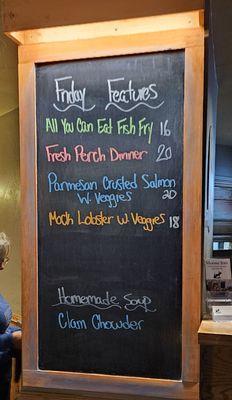 Friday Features
All You Can Eat Fish Fry 16
Fresh Perch Dinner 20
Parmesan Crusted Salmon
W. Veggies 20
Mock Lobster W Veggies 18
Homemade Soup
Clam Chowder